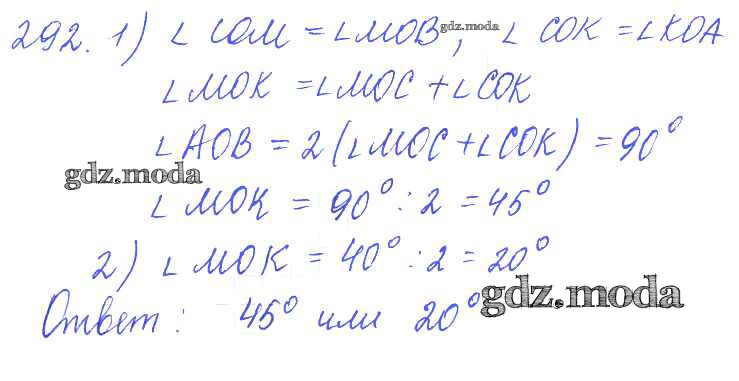 292. 1) ∠ COM = ∠MOB, ∠ COK = ∠KOA
gdz.moda
∠MOK = ∠MOC + ∠COK
∠AOB = 2(∠MOC + ∠COK) = 90°
gdz.moda
∠MOK = 90° : 2 = 45°
2) ∠MOK = 40° : 2 = 20°
Ответ: 45° или 20°
gdz.moda